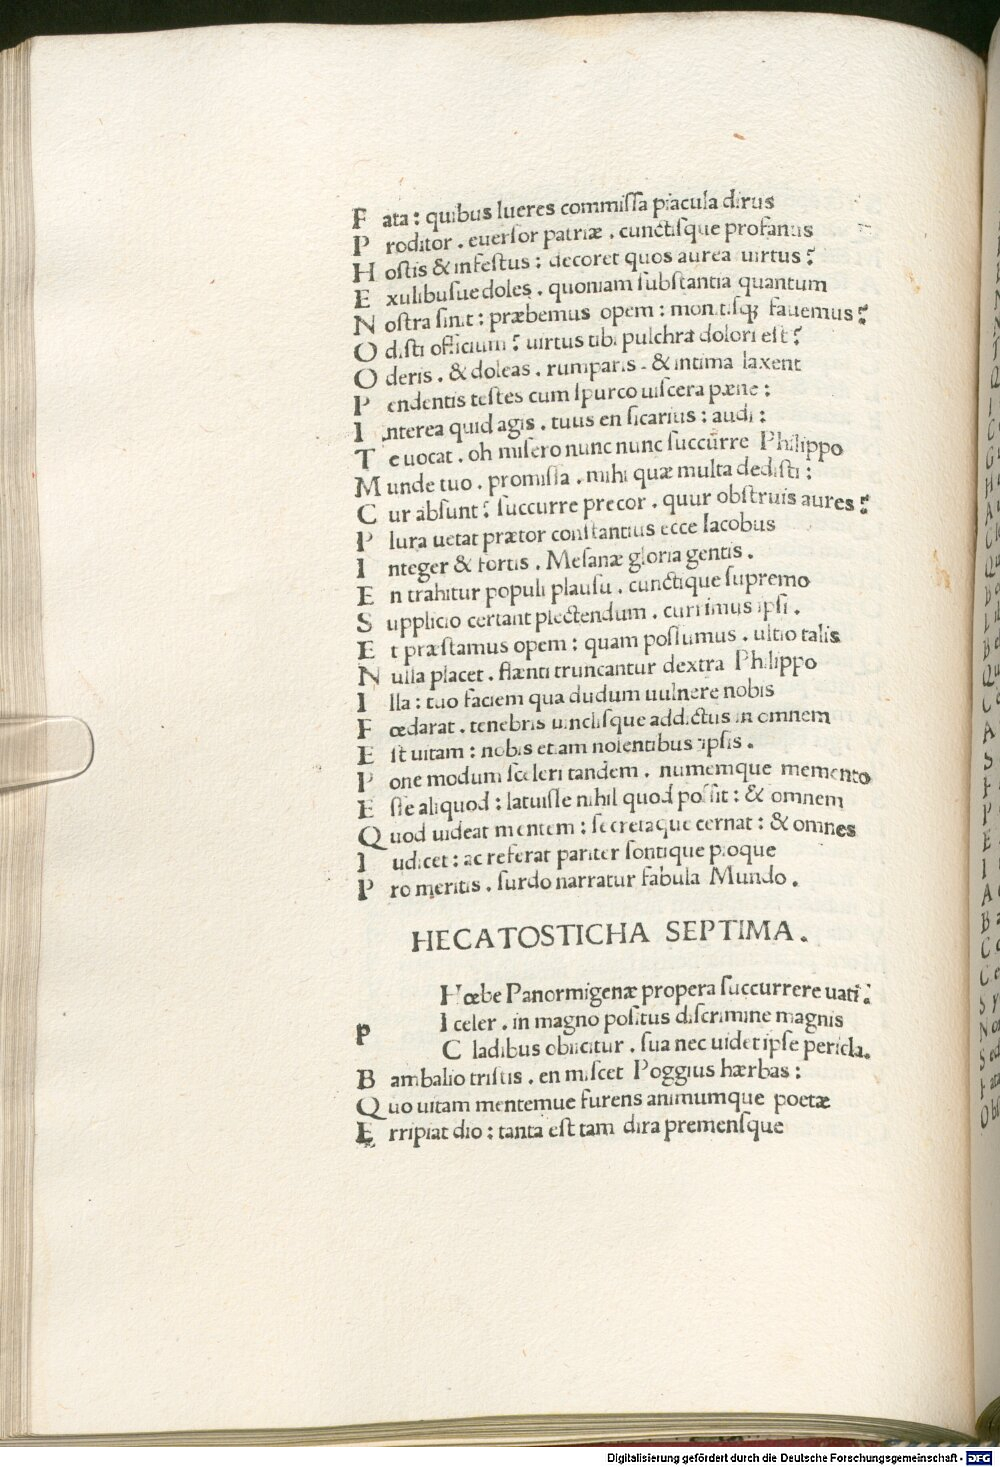 F ata : quibus lueres commiſſa piacula dirus
P roditor . euerſor patriæ . cunctiſque profanus
H oſtis & infeſtus : decoret quos aurea uirtus ?
E xulibuſue doles . quoniam ſubſtantia quantum
N oſtra ſinit : præbemus opem : monitiſqꝫ fauemus ?
O diſti officium ? uirtus tibi pulchra dolori eſt ?
O deris . & doleas . rumparis . & intima laxent
P endentis teſtes cum ſpurco uiſcera pæne :
I nterea quid agis . tuus en ſicarius : audi :
T e uocat . oh miſero nunc nunc ſuccurre Philippo
M unde tuo . promiſſa . mihi quæ multa dediſti :
C ur abſunt ? ſuccurre precor . quur obſtruis aures ?
P lura uetat prætor conſtantius ecce Iacobus
I nteger & fortis . Meſanæ gloria gentis .
E n trahitur populi plauſu . cunctique ſupremo
S upplicio certant plectendum . currimus ipſi .
E t præſtamus opem : quam poſſumus . ultio talis
N ulla placet . flænti truncantur dextra Philippo
I lla : tuo faciem qua dudum uulnere nobis
F œdarat . tenebris uincliſque addictus in omnem
E ſt uitam : nobis etiam nolentibus ipſis .
P one modum ſceleri tandem . numemque memento
E ſſe aliquod : latuiſſe nihil quod poſſit : & omnem
Q uod uideat mentem : ſecretaque cernat : & omnes
I udicet : ac referat pariter ſontique pioque
P ro meritis . ſurdo narratur fabula Mundo .
HECATOSTICHA SEPTIMA .
p Hœbe Panormigenæ propera ſuccurrere uati :
I celer . in magno poſitus diſcrimine magnis
C ladibus obiicitur . ſua nec uidet ipſe pericla .
B ambalio triſtis . en miſcet Poggius hærbas :
Q uo uitam mentemue furens animumque poetæ
E rripiat dio : tanta eſt tam dira premenſque
Digitalisierung gefördert durch die Deutsche Forschungsgemeinschaft - DFG